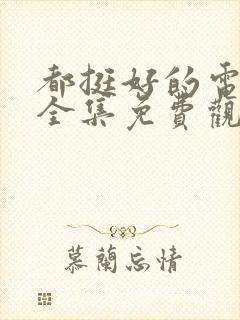 都挺好的電
全集免費觀
慕蘭忘情